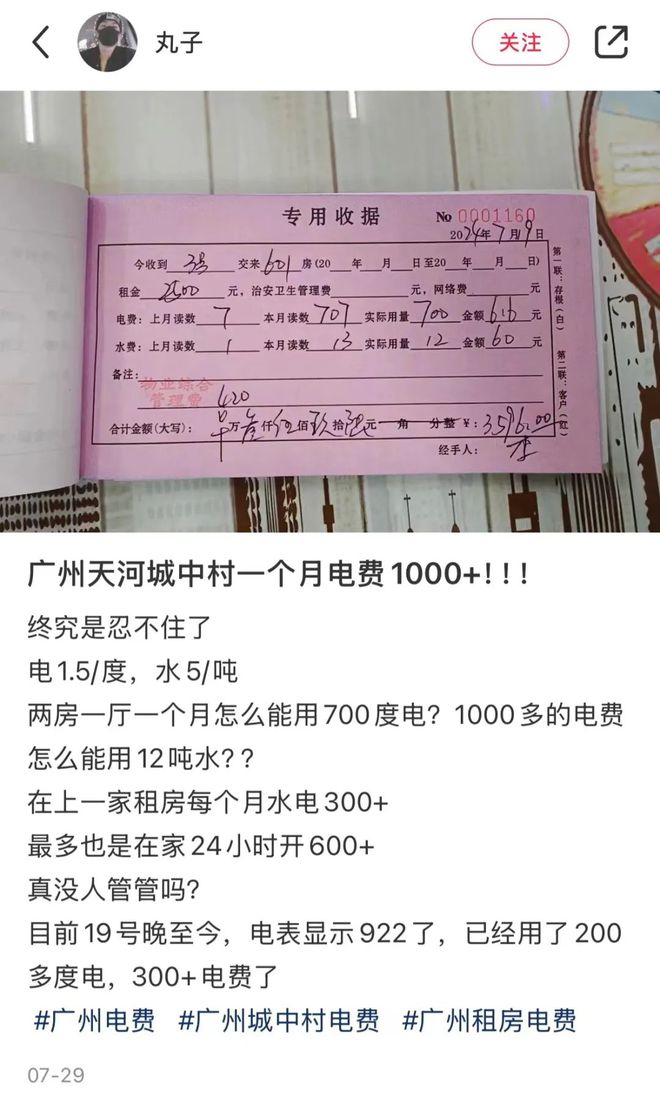 丸子
关注
专用收据
No 0001160
2024年7月19日
今收到 交来601房(20 年 月 日至20 年 月 日)
租金 2500 元，治安卫生管理费 元，网络费 元
电费：上月读数 7 本月读数 707 实际用量 700 金额 616 元
水费：上月读数 1 本月读数 13 实际用量 12 金额 60 元
备注：
物业综合
管理费 420
合计金额(大写)： 万叁仟伍佰玖拾陆元 角 分整 ¥：3596.00
经手人：
第一联：存根(白)
第二联：客户(红)
广州天河城中村一个月电费1000+！！！
终究是忍不住了
电1.5/度，水5/吨
两房一厅一个月怎么能用700度电？1000多的电费
怎么能用12吨水？？
在上一家租房每个月水电300+
最多也是在家24小时开600+
真没人管管吗？
目前19号晚至今，电表显示922了，已经用了200
多度电，300+电费了
#广州电费 #广州城中村电费 #广州租房电费
07-29